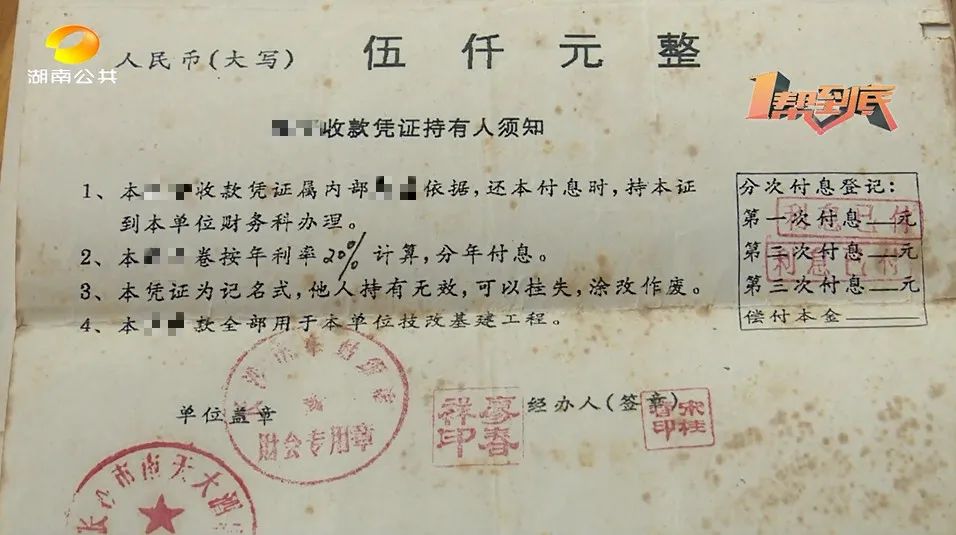 湖南公共
1帮到底
人民币(大写) 伍仟元整
收款凭证持有人须知
1、本收款凭证属内部依据,还本付息时,持本证
到本单位财务科办理。
2、本卷按年利率20%计算,分年付息。
3、本凭证为记名式,他人持有无效,可以挂失,涂改作废。
4、本款全部用于本单位技改基建工程。
分次付息登记:
第一次付息元
利息已付
第二次付息元
利息已付
第三次付息元
偿付本金
单位盖章
经办人(签章)
廖春祥印
宋桂印
市南天大酒